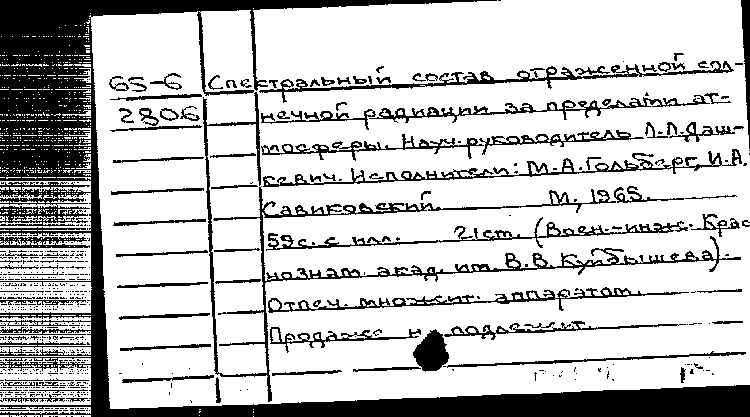 65-6 Спектральный состав отраженной сол-
2806 нечной радиации за пределами ат-
мосферы. Науч. руководитель Л.Л. Даш-
кевич. Исполнители: М.А. Гольдберг, И.А.
Савиковский. М., 1965.
59 с. с илл. 21 см. (Воен.-инж. Крас
нознам. акад. им. В.В. Куйбышева).
Отпеч. множит. аппаратом.
Продаже н подлежит.